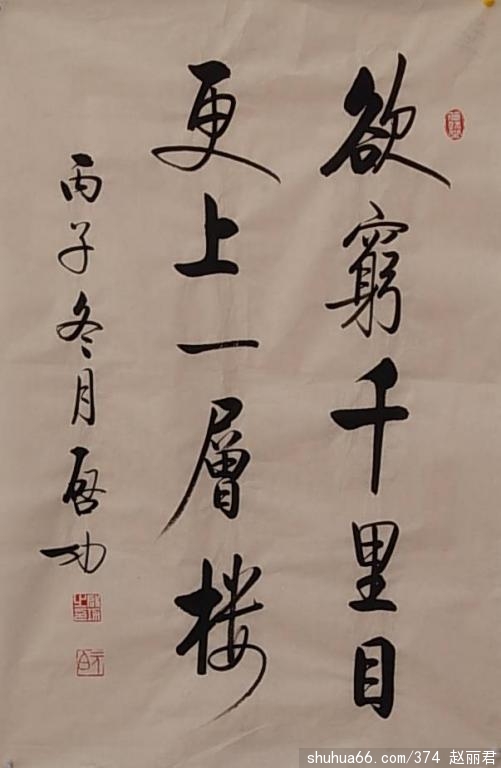 欲窮千里目
更上一層楼
丙子冬月啓功
shuhua66.com/374 赵丽君